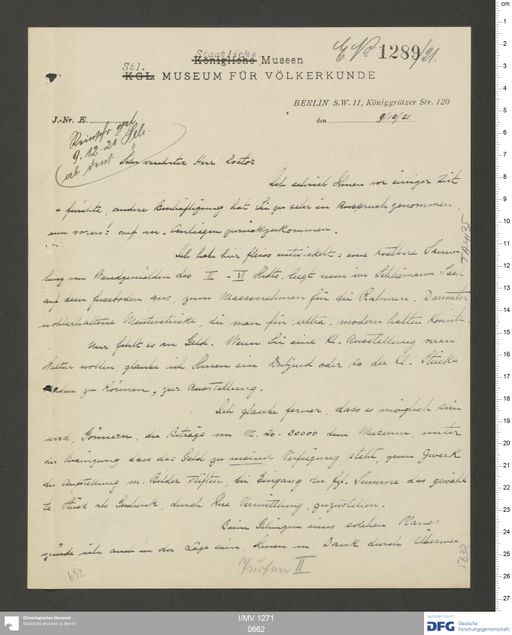 E No 1289/21.
Staatliche
Königliche Museen
Stl.
KGL MUSEUM FÜR VÖLKERKUNDE
BERLIN S.W. 11, Königgrätzer Str. 120
J.-Nr. E.
den 9/12/21
9.12.21
Sehr verehrter Herr Doctor
Ich schrieb Ihnen vor einiger Zeit
fürchte, andere Beschäftigung hat Sie zu sehr in Anspruch genommen,
um auf m. Anliegen zurückzukommen.
Ich habe hier fleiss entwickelt: eine kostbare Samm-
lung von Wandgemälden des II - VI Jhdts. liegt nun im Schliemann Saal
auf dem Fussboden aus, zum Massnehmen für die Rahmen. Darunter
wohlerhaltene Meisterstücke, die man für ultra-modern halten könnte.
Nur fehlt es an Geld. Wenn Sie eine kl. Ausstellung veran-
stalten wollen, glaube ich Ihnen ein Dutzend oder so der kl. Stücke
senden zu können, zur Ausstellung.
Ich glaube ferner, dass es möglich sein
wird, Gönnern, die Beträge von M. 20000 dem Museum, unter
der Bedingung dass das Geld zu meiner Verfügung steht, zum Zweck
der Ausstellung m. Bilder stiften, bei Eingang der Summe das gewähl-
te Stück als Geschenk, durch Ihre Vermittlung, zuzustellen.
Beim Gelingen eines solchen Planes
würde ich auch in der Lage sein, Ihnen m. Dank durch Überwei-
Turfan II
632
TA 4135
Ethnologisches Museum
Staatliche Museen zu Berlin
I/MV 1271
0662
gefördert durch
DFG Deutsche
Forschungsgemeinschaft
cm
1
2
3
4
5
6
7
8
9
10
11
12
13
14
15
16
17
18
19
20
21
22
23
24
25
26
27